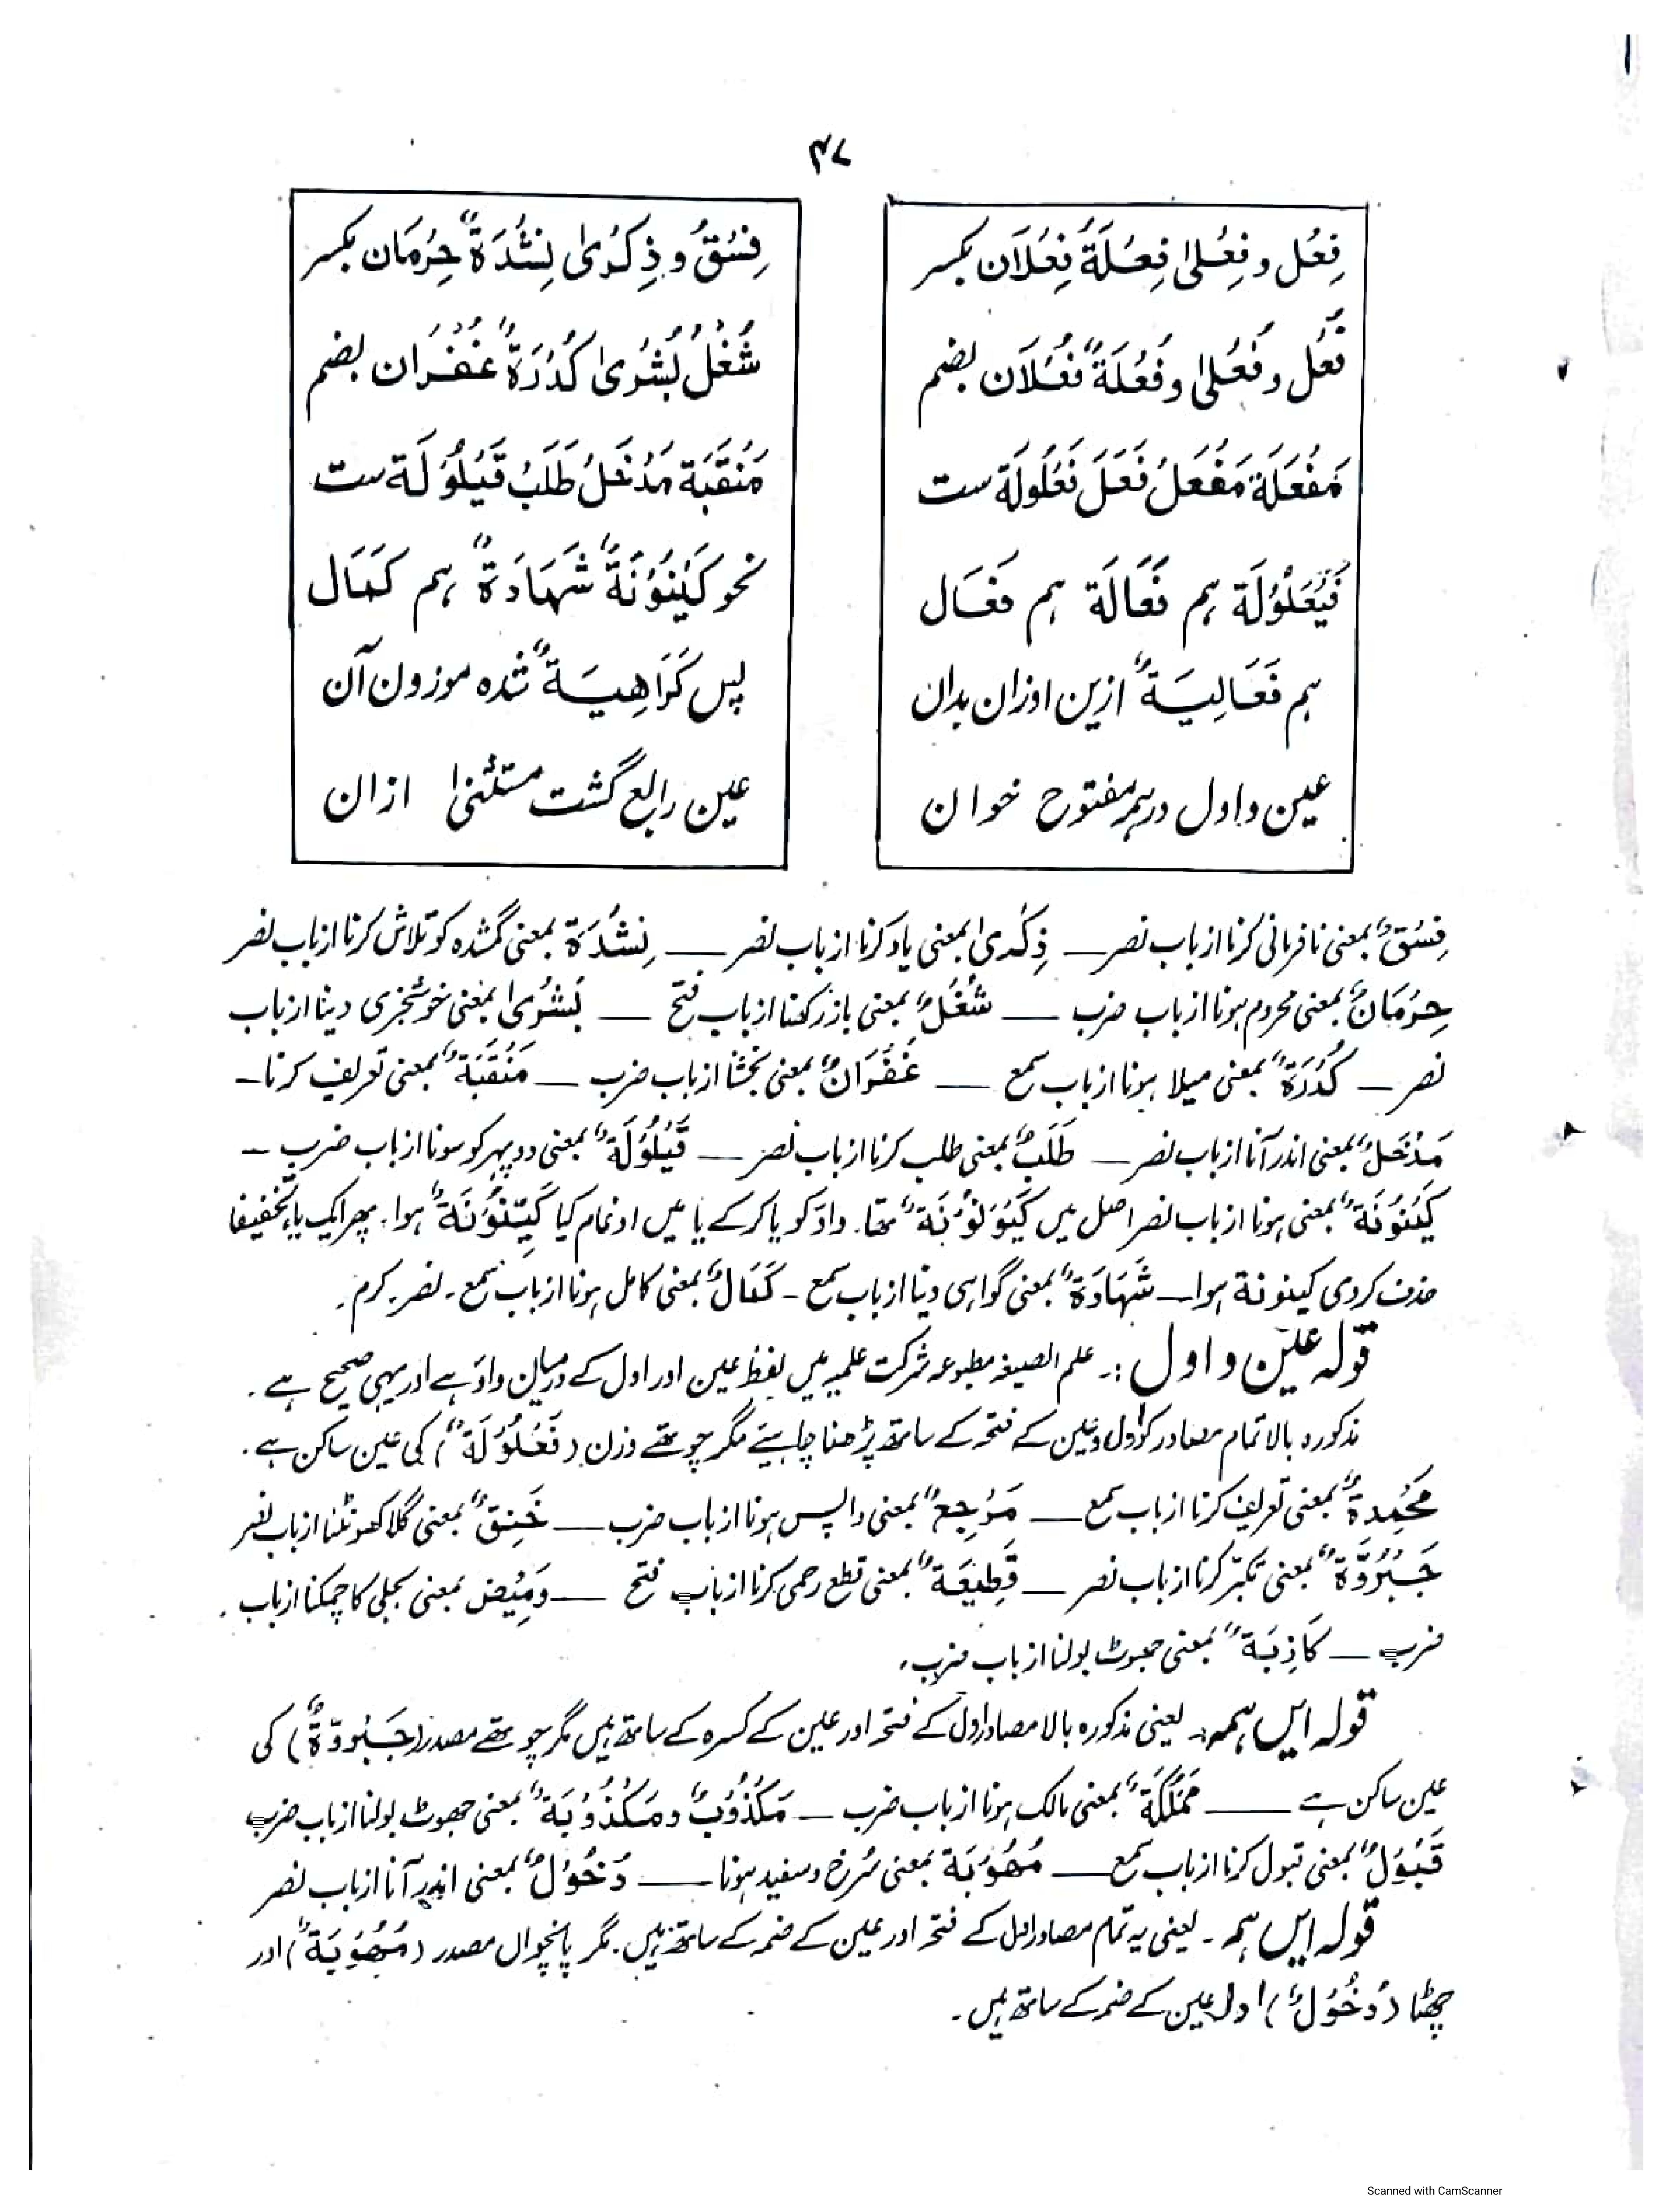 ۴۷
فِعْل و فِعْلىٰ فِعْلَةٌ فِعْلَان بکسر
فِسْقٌ و ذِكْرىٰ نِشْدَةٌ حِرْمَان بکسر
فُعْل و فُعْلىٰ و فُعْلَةٌ فُعْلَان بضم
شُغْلٌ بُشْرىٰ كُدْرَةٌ غُفْرَان بضم
مَفْعَلَة مَفْعَلٌ فَعَلَ فَعْلُولَة ست
مَنْقَبَة مَدْخَلٌ طَلَبٌ قَيْلُوْلَة ست
فَيْعَلُوْلَة ہم فَعَالَة ہم فَعَال
نحو كَيْنُوْنَةٌ شَهَادَةٌ ہم كَمَال
ہم فَعَالِيَةٌ ازین اوزان بدان
پس كَرَاهِيَةٌ شدہ موزون آن
عین و اول در ہمہ مفتوح خوان
عین رابع گشت مستثنیٰ ازان
فِسْقٌ بمعنی نافرمانی کرنا از باب نصر — ذِكْرىٰ بمعنی یاد کرنا از باب نصر — نِشْدَة بمعنی گمشدہ کو تلاش کرنا از باب نصر
حِرْمَانٌ بمعنی محروم ہونا از باب ضرب — شُغْلٌ بمعنی باز رکھنا از باب فتح — بُشْرىٰ بمعنی خوشخبری دینا از باب
نصر — كُدْرَةٌ بمعنی میلا ہونا از باب سمع — غُفْرَانٌ بمعنی بخشنا از باب ضرب — مَنْقَبَةٌ بمعنی تعریف کرنا —
مَدْخَلٌ بمعنی اندر آنا از باب نصر — طَلَبٌ بمعنی طلب کرنا از باب نصر — قَيْلُوْلَةٌ بمعنی دوپہر کو سونا از باب ضرب —
كَيْنُوْنَةٌ بمعنی ہونا از باب نصر اصل میں كَيْوَنُوْنَةٌ تھا۔ واؤ کو یا کر کے یا میں ادغام کیا كَيَّنُوْنَةٌ ہوا۔ پھر ایک یا تخفیفا
حذف کر دی کینونة ہوا — شَهَادَةٌ بمعنی گواہی دینا از باب سمع - كَمَالٌ بمعنی کامل ہونا از باب سمع - نصر - کرم۔
قوله عین و اول :۔ علم الصیغہ مطبوعہ شرکت علمیہ میں لفظ عین اور اول کے درمیان واؤ ہے اور یہی صحیح ہے۔
مذکورہ بالا تمام مصادر کو اول و عین کے فتحہ کے ساتھ پڑھنا چاہیئے مگر چوتھے وزن (فَعْلُوْلَةٌ) کی عین ساکن ہے۔
مَحْمِدَةٌ بمعنی تعریف کرنا از باب سمع — مَرْجِعٌ بمعنی واپس ہونا از باب ضرب — خَنِقٌ بمعنی گلا گھونٹنا از باب نصر
جَبْرُوَّةٌ بمعنی تکبّر کرنا از باب نصر — قَطِيْعَةٌ بمعنی قطع رحمی کرنا از باب فتح — وَمِيْض بمعنی بجلی کا چمکنا از باب
ضرب — كَاذِبَةٌ بمعنی جھوٹ بولنا از باب ضرب۔
قوله ایں ہمہ:۔ یعنی مذکورہ بالا مصادر اول کے فتحہ اور عین کے کسرہ کے ساتھ ہیں مگر چوتھے مصدر (جَبْرُوَّةٌ) کی
عین ساکن ہے — مَمْلُكَةٌ بمعنی مالک ہونا از باب ضرب — مَكْذُوْبٌ و مَكْذُوْبَةٌ بمعنی جھوٹ بولنا از باب ضرب
قَبُوْلٌ بمعنی قبول کرنا از باب سمع — صُهُوْبَة بمعنی سُرخ و سفید ہونا — دُخُوْلٌ بمعنی اندر آنا از باب نصر
قوله ایں ہمہ - یعنی یہ تمام مصادر اول کے فتحہ اور عین کے ضمہ کے ساتھ ہیں۔ مگر پانچواں مصدر (صُهُوْبَةٌ) اور
چھٹا (دُخُوْلٌ) اول عین کے ضمہ کے ساتھ ہیں۔
Scanned with CamScanner